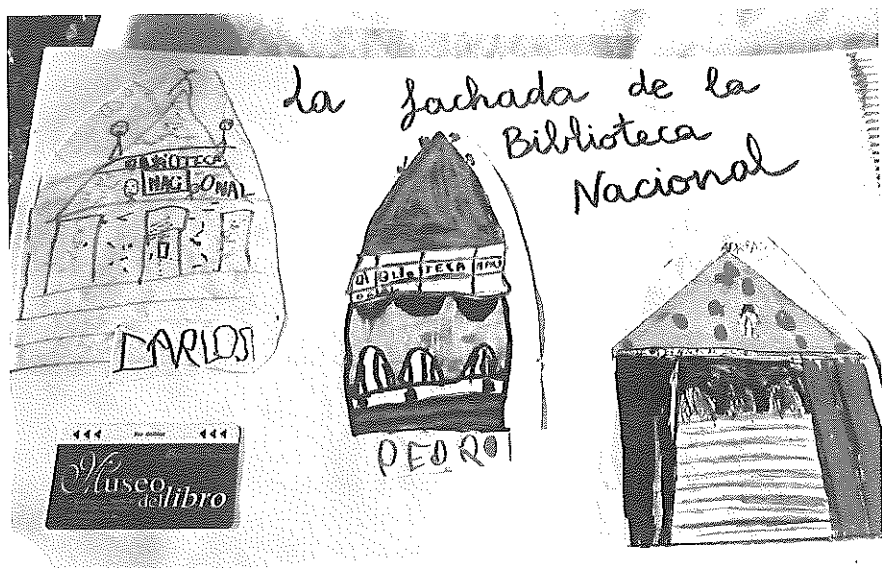 La fachada de la
Biblioteca
Nacional
BIBLIOTECA
NACIONAL
CARLOS
BIBLIOTECA NACI
ONAL
PEDRO
Museo
del libro